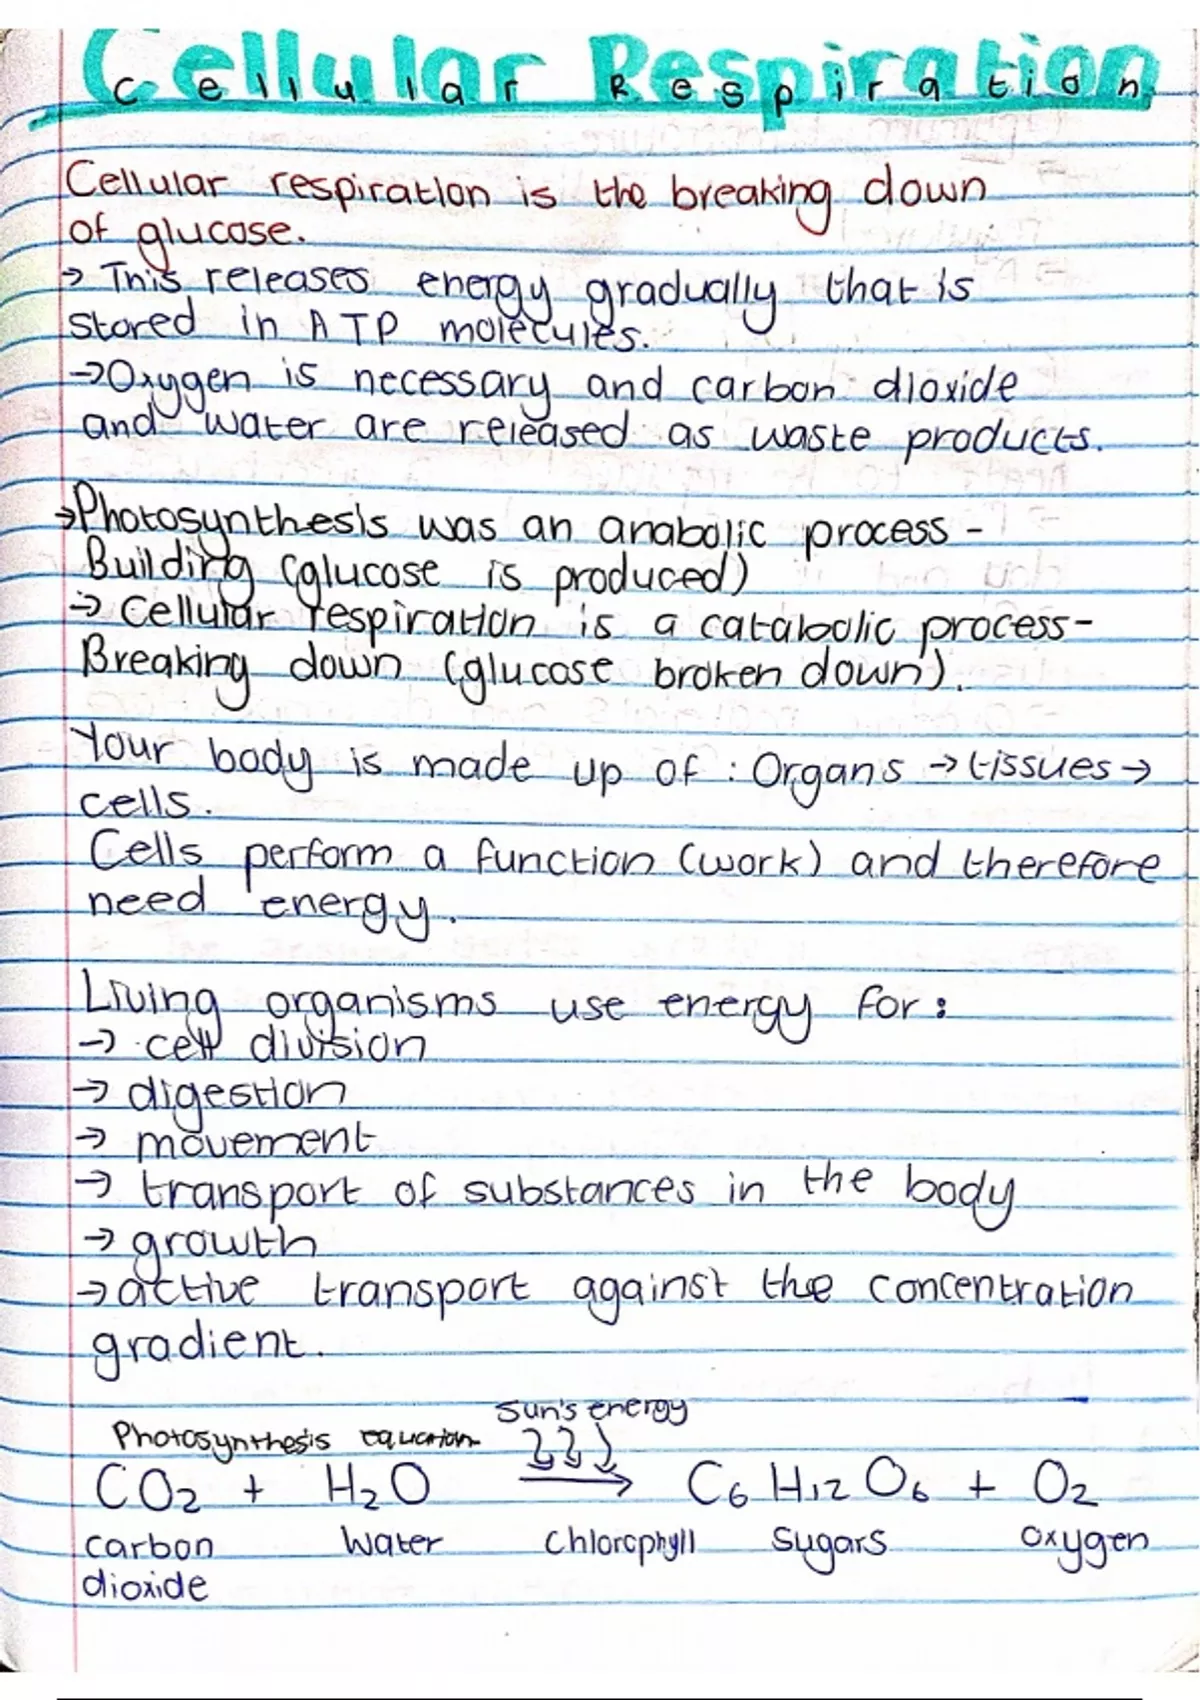 Cellular Respiration
Cellular Respiration
Cellular respiration is the breaking down
of glucose.
→ This releases energy gradually that is
stored in ATP molecules.
→ Oxygen is necessary and carbon dioxide
and water are released as waste products.
→ Photosynthesis was an anabolic process -
Building (glucose is produced)
→ Cellular respiration is a catabolic process-
Breaking down (glucose broken down).
Your body is made up of : Organs → tissues →
cells.
Cells perform a function (work) and therefore
need energy.
Living organisms use energy for :
→ cell division
→ digestion
→ movement
→ transport of substances in the body
→ growth
→ active transport against the concentration
gradient.
Sun's energy
Photosynthesis equation
CO₂ + H₂O → C₆H₁₂O₆ + O₂
carbon water chlorophyll sugars oxygen
dioxide